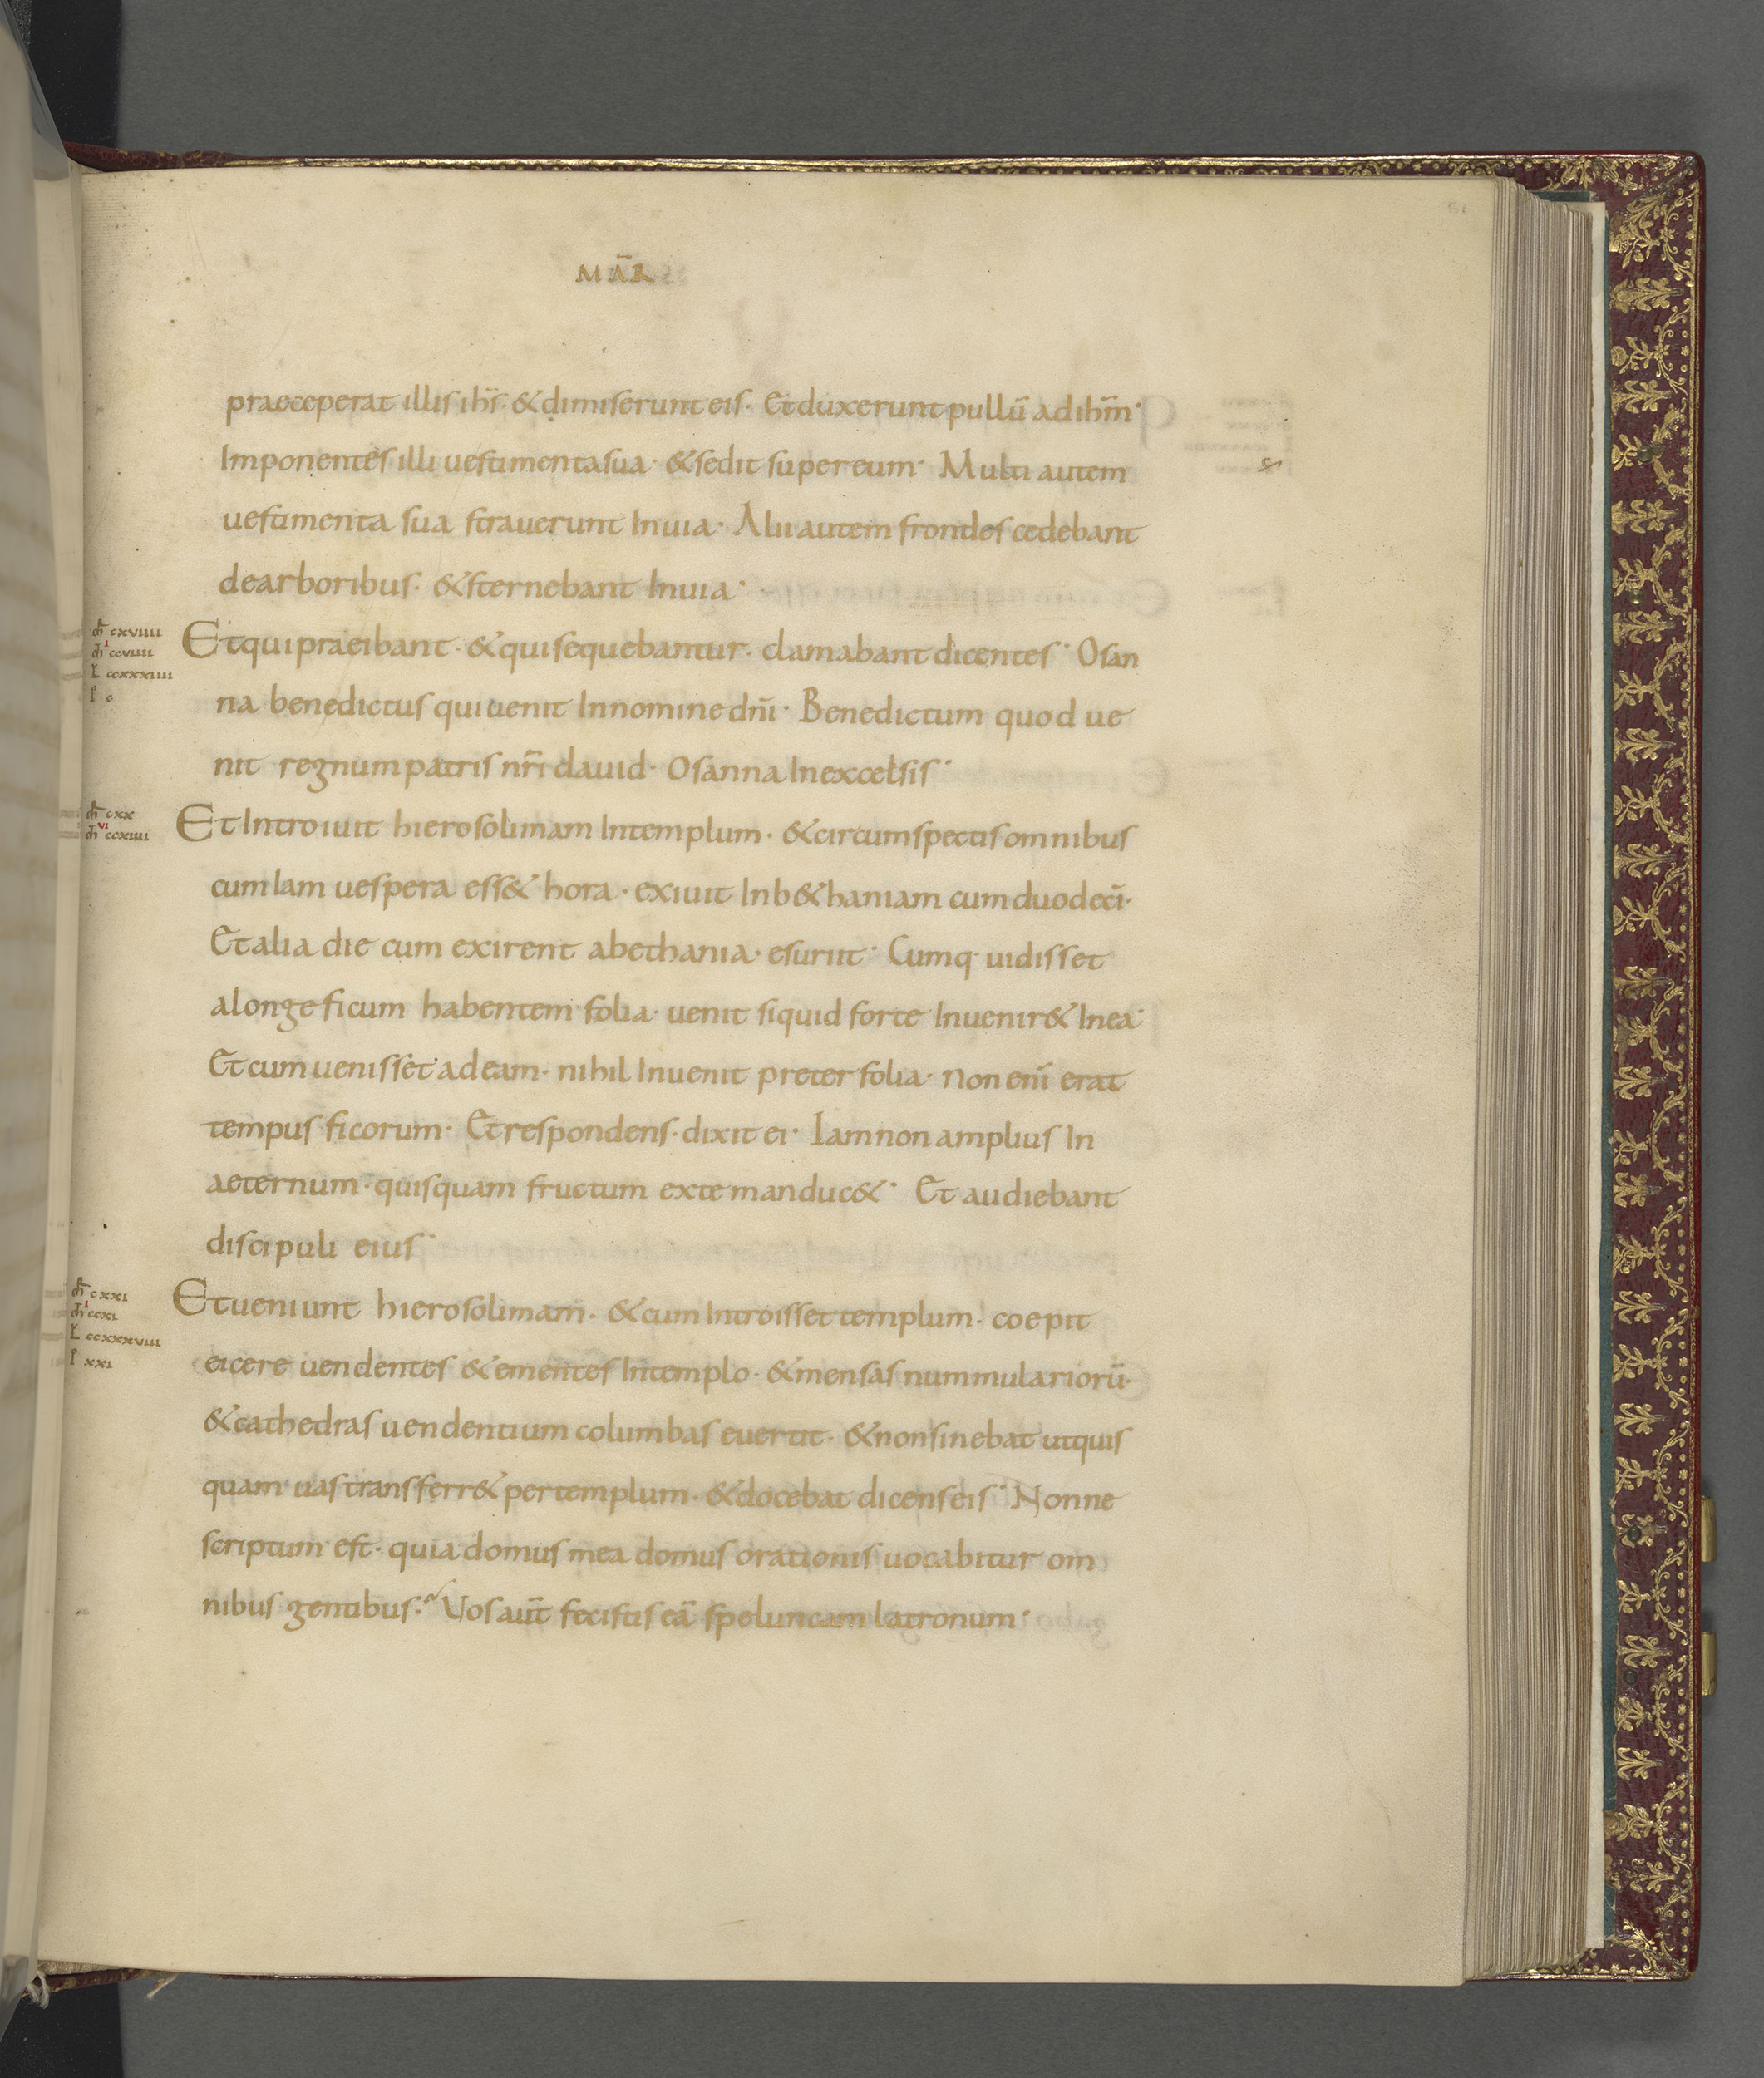 MAR̄
praeceperat illis ihs̄· & dimiserunt eis· Et duxerunt pullū ad ihm̄·
Imponentes illi uestimenta sua· & sedit super eum· Multi autem
uestimenta sua strauerunt In uia· Alii autem frondes cedebant
de arboribus· & sternebant In uia·
m̄ cxviiii
m̄ ccviiii
L ccxxxiiii
I c
Et qui praeibant· & qui sequebantur· clamabant dicentes· Osan
na benedictus qui uenit In nomine dn̄i· Benedictum quod ue
nit regnum patris nr̄i dauid· Osanna In excelsis·
m̄ cxx
m̄ vi ccxiiii
Et Introiuit hierosolimam In templum· & circumspectis omnibus
cum Iam uespera ess& hora· exiuit In b&haniam cum duodecī·
Et alia die cum exirent a bethania· esuriit· Cumq· uidisset
a longe ficum habentem folia· uenit si quid forte Inuenir& In ea·
Et cum uenisset ad eam· nihil Inuenit preter folia· non enī erat
tempus ficorum· Et respondens· dixit ei· Iam non amplius In
aeternum· quisquam fructum ex te manduc&· Et audiebant
discipuli eius·
m̄ cxxi
m̄ ccxi
L ccxxxviii
I xxi
Et ueniunt hierosolimam· & cum Introisset templum· coepit
eicere uendentes & ementes In templo· & mensas nummulariorū·
& cathedras uendentium columbas euertit· & non sinebat ut quis
quam uas transferr& per templum· & docebat dicens eis· Nonne
scriptum est· quia domus mea domus orationis uocabitur om
nibus gentibus· Uos aut̄ fecistis eā speluncam latronum·